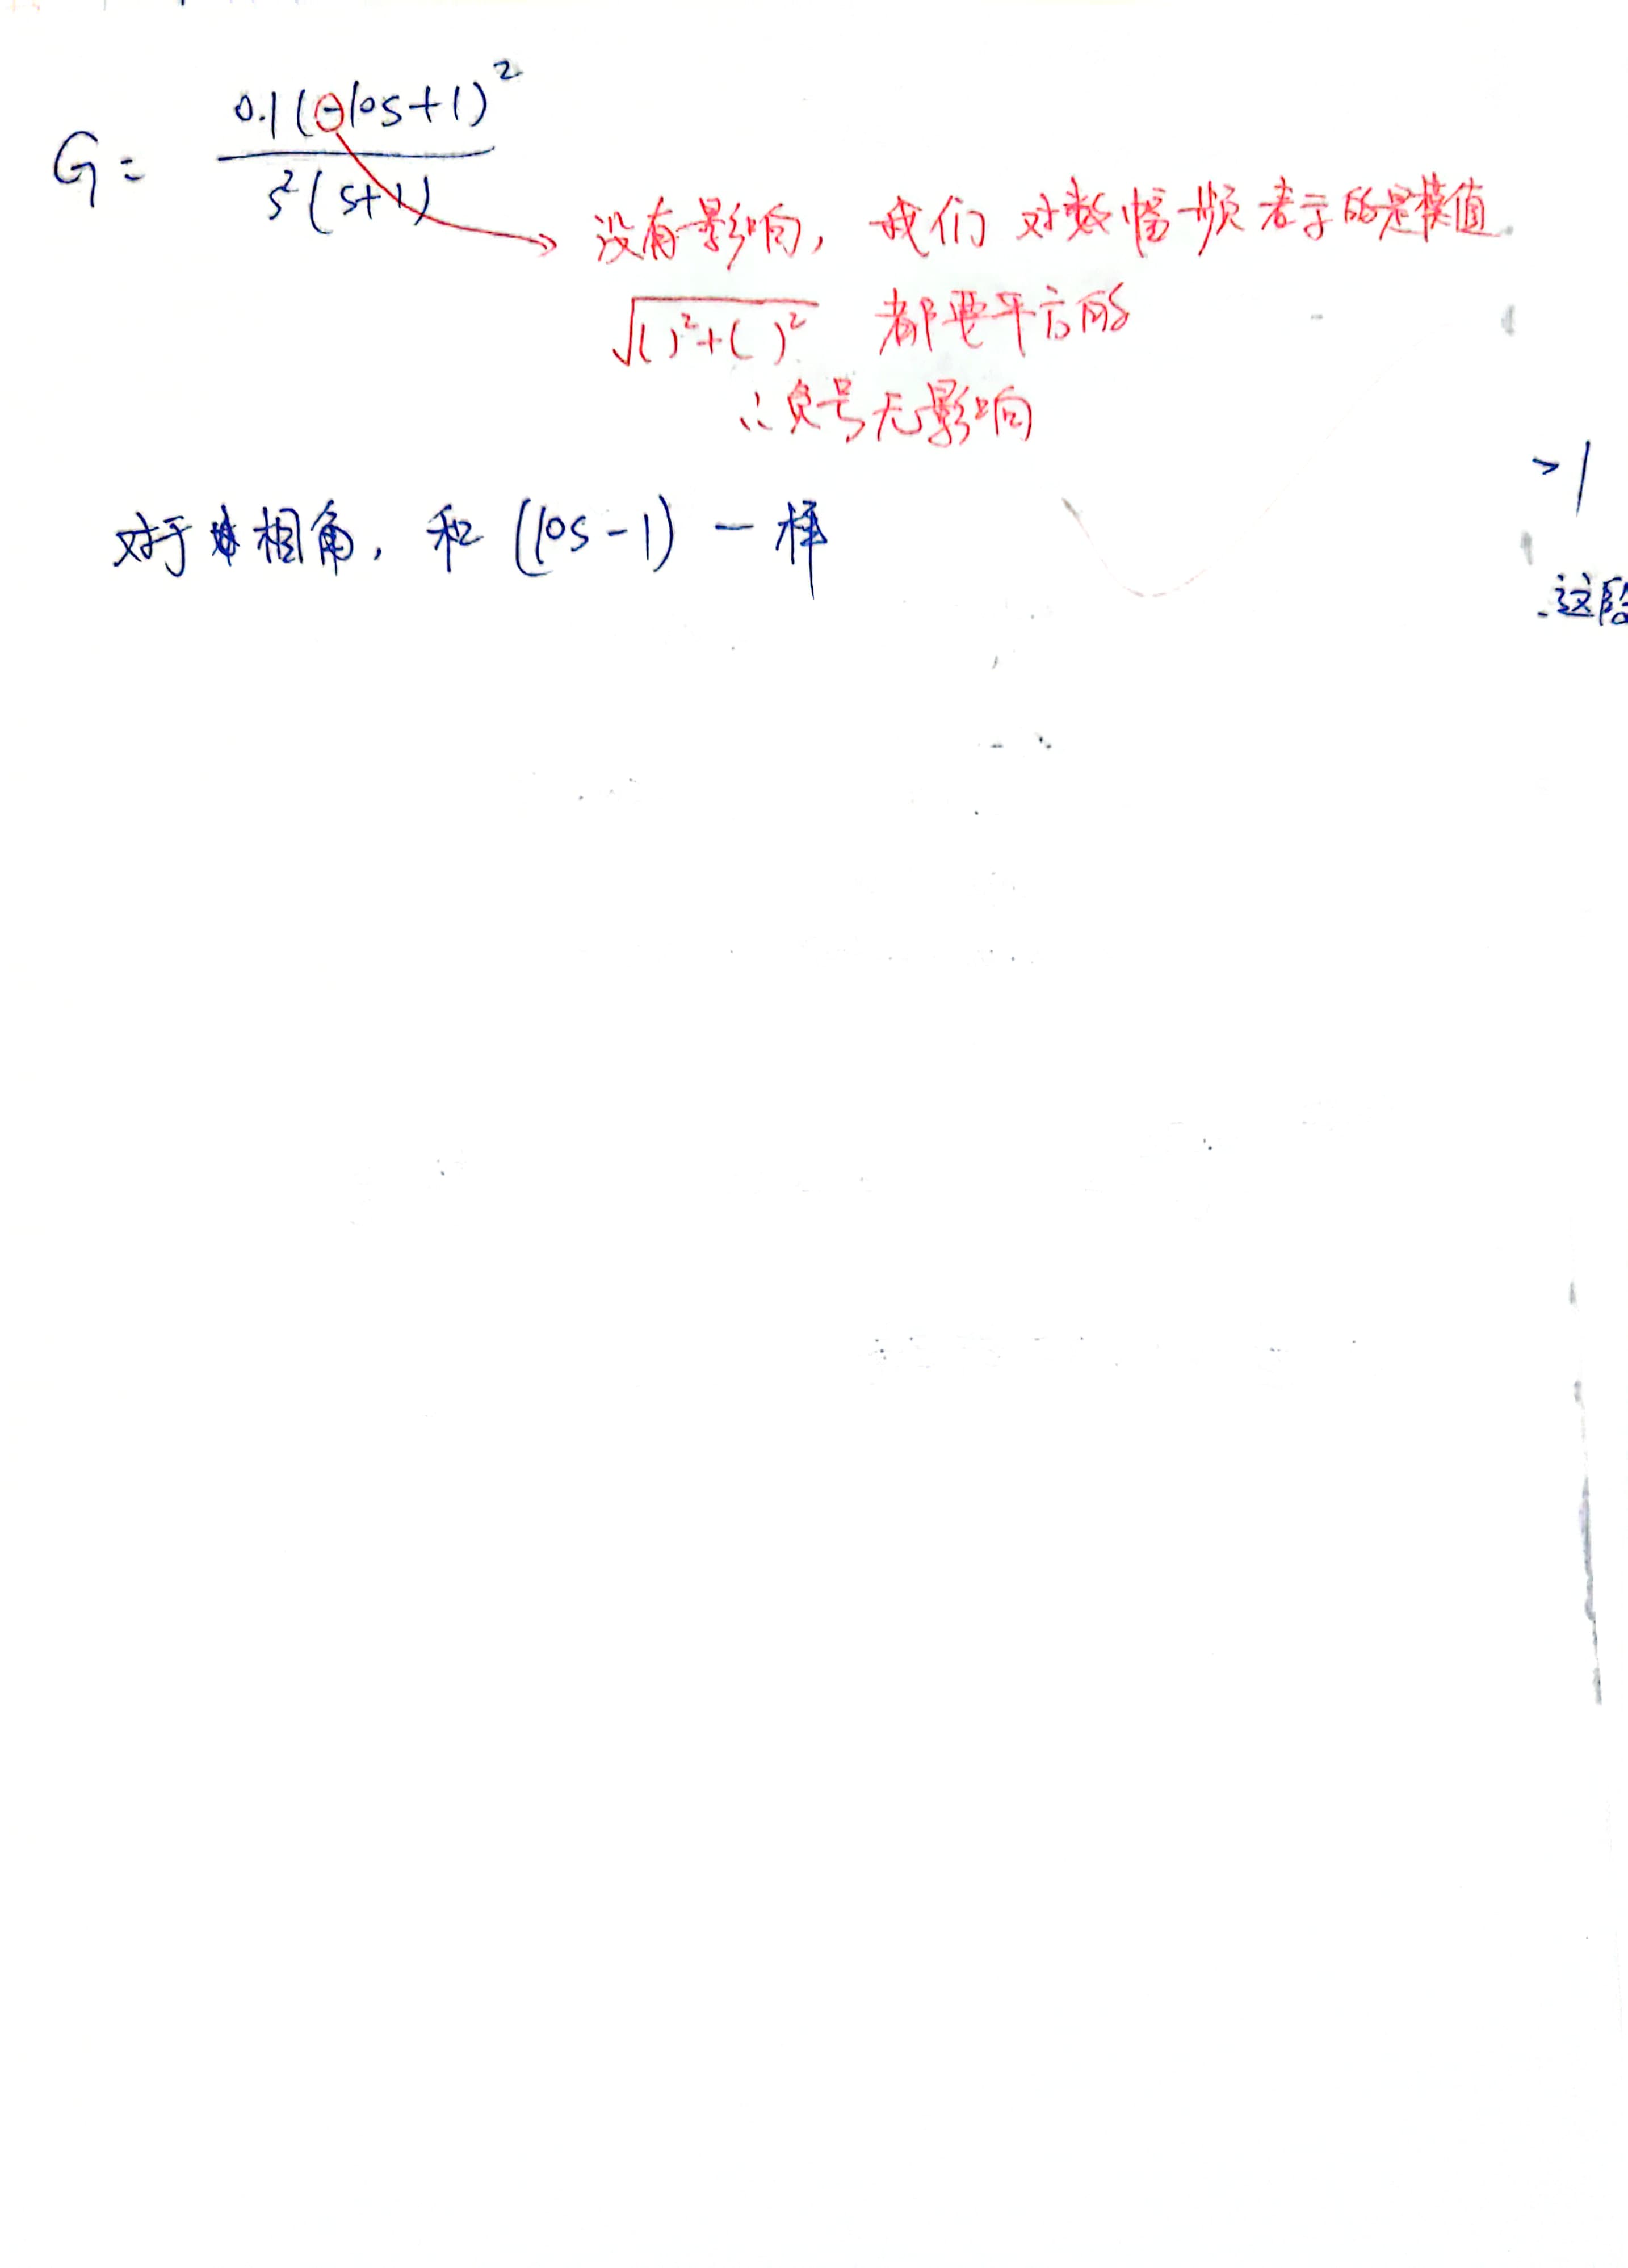 G = 0.1(-10s+1)² / s²(s+1)
没有影响, 我们对数幅频表示的是模值
√( )²+( )² 都要平方的
∴负号无影响
>1
对于相角, 和(10s-1)一样
这段